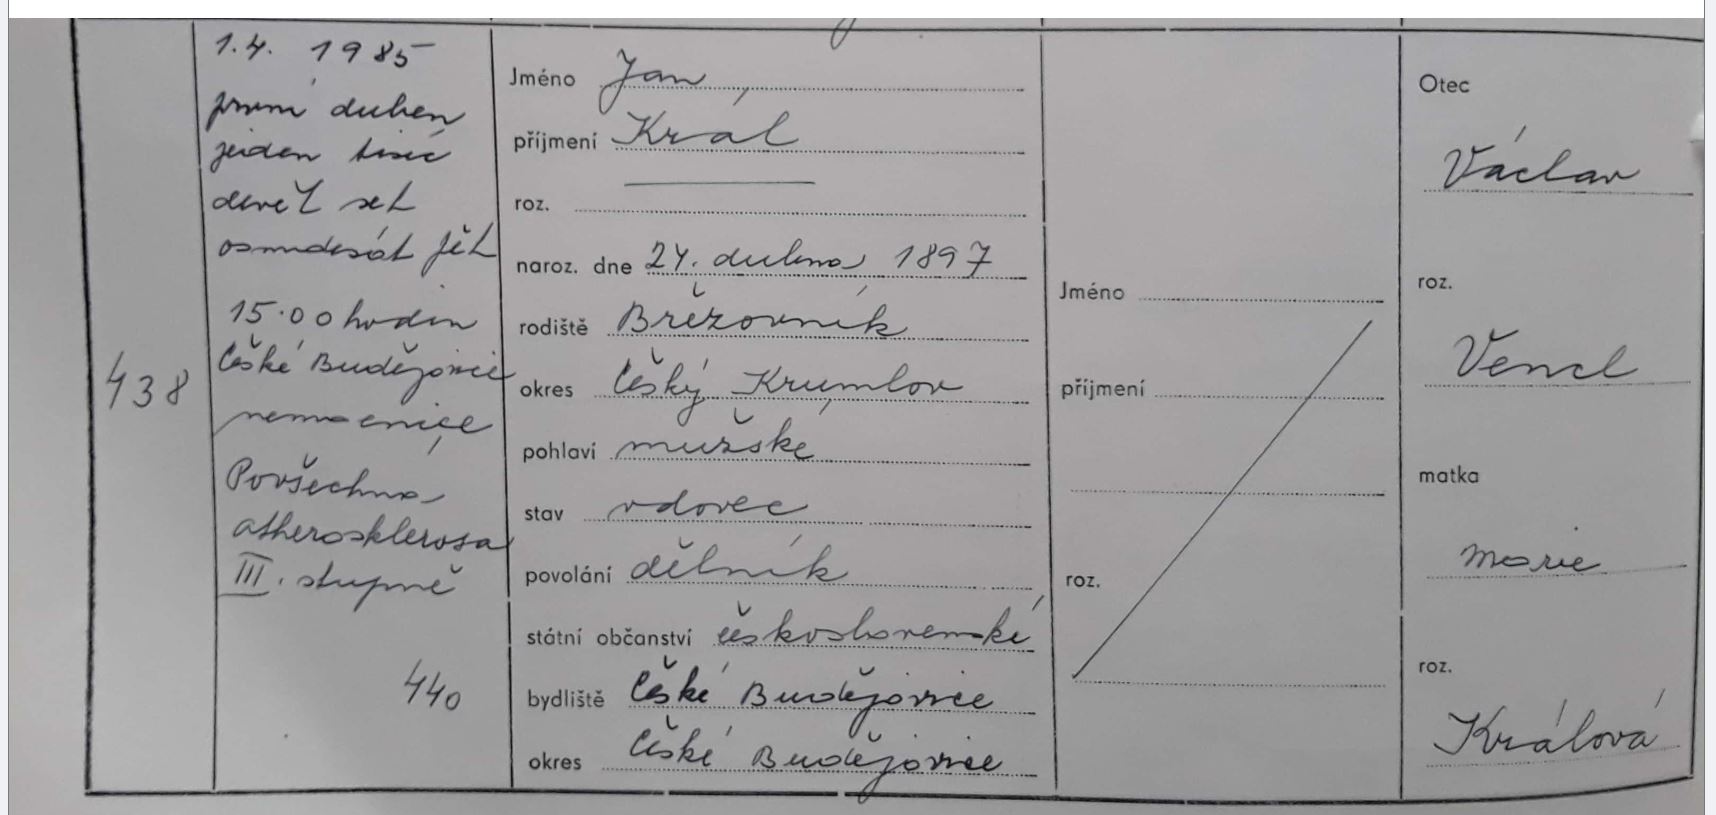 438
1.4. 1985
první duben
jeden tisíc
devět set
osmdesát pět
15.00 hodin
České Budějovice
nemocnice
Povšechná
atherosklerosa
III. stupně
440
Jméno Jan
příjmení Král
roz.
naroz. dne 24. dubna 1897
rodiště
okres Český Krumlov
pohlaví mužské
stav vdovec
povolání dělník
státní občanství československé
bydliště České Budějovice
okres České Budějovice
Jméno
příjmení
roz.
Otec
Václav
roz.
Vencl
matka
Marie
roz.
Králová